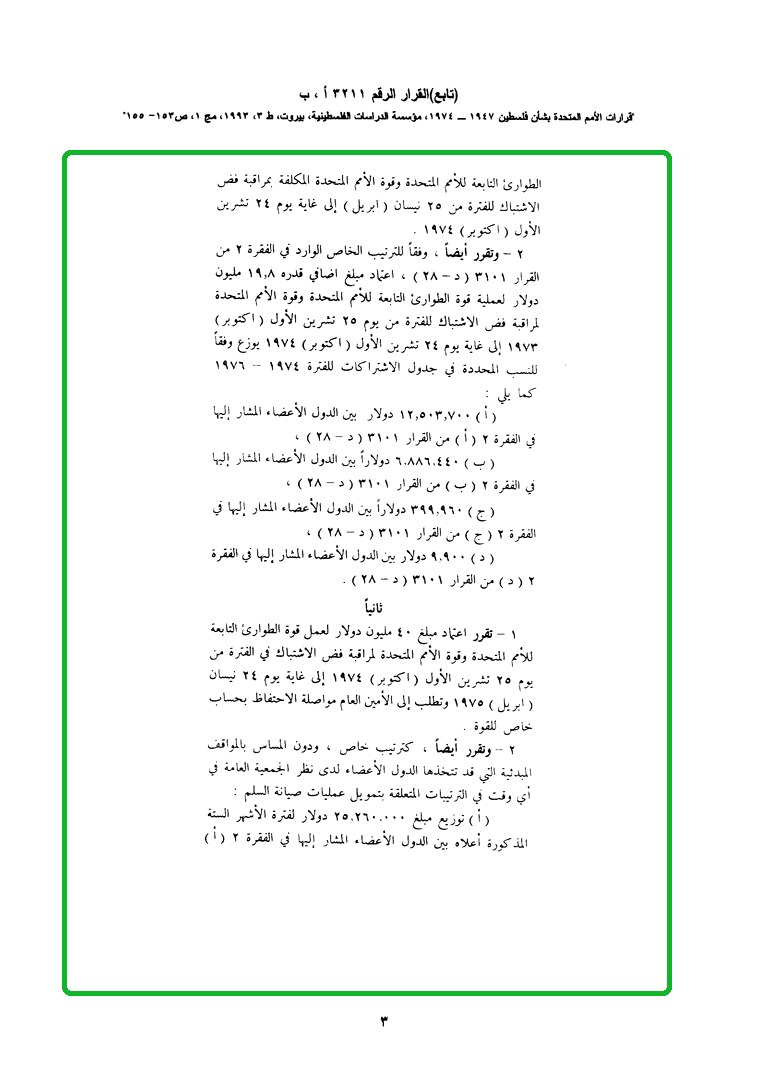 (تابع)القرار الرقم ٣٢١١ أ ، ب
"قرارات الأمم المتحدة بشأن فلسطين ١٩٤٧ ــ ١٩٧٤، مؤسسة الدراسات الفلسطينية، بيروت، ط ٣، ١٩٩٣، مج ١، ص١٥٣- ١٥٥"
الطوارئ التابعة للأمم المتحدة وقوة الأمم المتحدة المكلفة بمراقبة فض
الاشتباك للفترة من ٢٥ نيسان ( ابريل ) إلى غاية يوم ٢٤ تشرين
الأول ( اكتوبر ) ١٩٧٤ .
٢ – وتقرر أيضاً ، وفقاً للترتيب الخاص الوارد في الفقرة ٢ من
القرار ٣١٠١ ( د – ٢٨ ) ، اعتماد مبلغ اضافي قدره ١٩,٨ مليون
دولار لعملية قوة الطوارئ التابعة للأمم المتحدة وقوة الأمم المتحدة
لمراقبة فض الاشتباك للفترة من يوم ٢٥ تشرين الأول ( اكتوبر )
١٩٧٣ إلى غاية يوم ٢٤ تشرين الأول ( اكتوبر ) ١٩٧٤ يوزع وفقاً
للنسب المحددة في جدول الاشتراكات للفترة ١٩٧٤ – ١٩٧٦
كما يلي :
( أ ) ١٢,٥٠٣,٧٠٠ دولار بين الدول الأعضاء المشار إليها
في الفقرة ٢ ( أ ) من القرار ٣١٠١ ( د – ٢٨ ) ،
( ب ) ٦,٨٨٦,٤٤٠ دولاراً بين الدول الأعضاء المشار إليها
في الفقرة ٢ ( ب ) من القرار ٣١٠١ ( د – ٢٨ ) ،
( ج ) ٣٩٩,٩٦٠ دولاراً بين الدول الأعضاء المشار إليها في
الفقرة ٢ ( ج ) من القرار ٣١٠١ ( د – ٢٨ ) ،
( د ) ٩,٩٠٠ دولار بين الدول الأعضاء المشار إليها في الفقرة
٢ ( د ) من القرار ٣١٠١ ( د – ٢٨ ) .
ثانياً
١ – تقرر اعتماد مبلغ ٤٠ مليون دولار لعمل قوة الطوارئ التابعة
للأمم المتحدة وقوة الأمم المتحدة لمراقبة فض الاشتباك في الفترة من
يوم ٢٥ تشرين الأول ( اكتوبر ) ١٩٧٤ إلى غاية يوم ٢٤ نيسان
( ابريل ) ١٩٧٥ وتطلب إلى الأمين العام مواصلة الاحتفاظ بحساب
خاص للقوة .
٢ – وتقرر أيضاً ، كترتيب خاص ، ودون المساس بالمواقف
المبدئية التي قد تتخذها الدول الأعضاء لدى نظر الجمعية العامة في
أي وقت في الترتيبات المتعلقة بتمويل عمليات صيانة السلم :
( أ ) توزيع مبلغ ٢٥,٢٦٠,٠٠٠ دولار لفترة الأشهر الستة
المذكورة أعلاه بين الدول الأعضاء المشار إليها في الفقرة ٢ ( أ )
٣